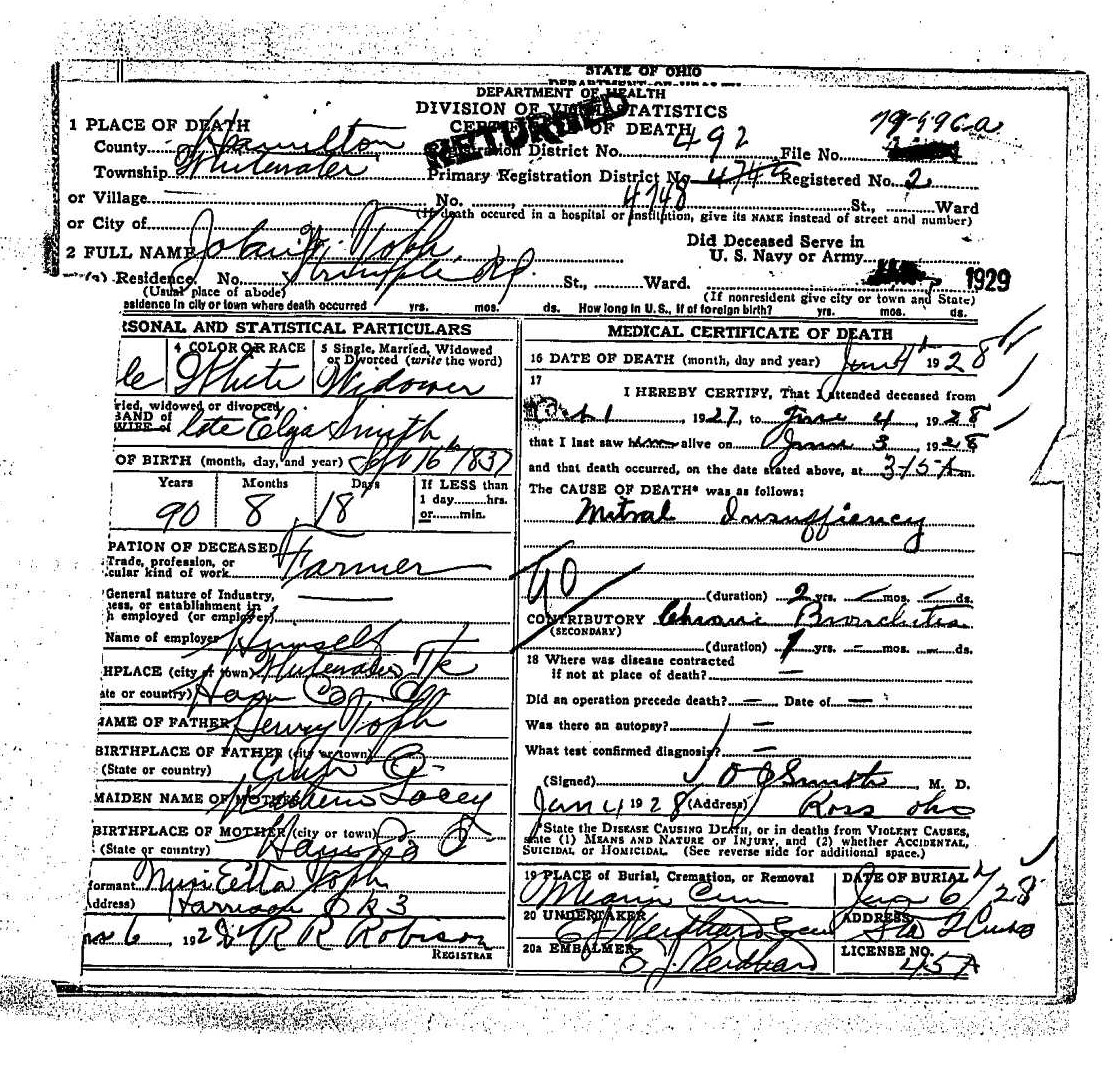 STATE OF OHIO
DEPARTMENT OF HEALTH
DIVISION OF VITAL STATISTICS
CERTIFICATE OF DEATH
RETURNED
1 PLACE OF DEATH
County Hamilton Registration District No. 492 File No.
Township Whitewater Primary Registration District No. 4748 Registered No. 2
or Village No. , 4748 St., Ward
(If death occured in a hospital or institution, give its NAME instead of street and number)
or City of
2 FULL NAME John Toph Did Deceased Serve in
U. S. Navy or Army
(a) Residence. No. St., Ward. 1929
(Usual place of abode) (If nonresident give city or town and State)
esidence in city or town where death occurred yrs. mos. ds. How long in U.S., if of foreign birth? yrs. mos. ds.
RSONAL AND STATISTICAL PARTICULARS
4 COLOR OR RACE 5 Single, Married, Widowed
or Divorced (write the word)
le White Widower
ried, widowed or divorced,
BAND of
WIFE of late Smith
OF BIRTH (month, day, and year) Sept 16th 1837
Years Months Days If LESS than
1 day hrs.
or min.
90 8 18
PATION OF DECEASED
Trade, profession, or
cular kind of work Farmer
General nature of Industry,
ness, or establishment in
h employed (or employer)
Name of employer Himself
HPLACE (city or town) Whitewater
ate or country) Ham Co
NAME OF FATHER Henry Toph
BIRTHPLACE OF FATHER (city or town)
(State or country)
MAIDEN NAME OF MOTHER
BIRTHPLACE OF MOTHER (city or town)
(State or country)
formant Etta Toph
ddress) Harrison O R 3
6, 192 R R Robison
REGISTRAR
MEDICAL CERTIFICATE OF DEATH
16 DATE OF DEATH (month, day and year) June 4th 1928
17
I HEREBY CERTIFY, That I attended deceased from
1, 1927, to June 4, 1928
that I last saw him alive on June 3, 1928
and that death occurred, on the date stated above, at 3-15 A m.
The CAUSE OF DEATH* was as follows:
Mitral Insuffiency
90
(duration) 2 yrs. mos. ds.
CONTRIBUTORY Chronic Bronchitis
(SECONDARY)
(duration) 1 yrs. mos. ds.
18 Where was disease contracted
If not at place of death?
Did an operation precede death? Date of
Was there an autopsy?
What test confirmed diagnosis?
(Signed) Smith M. D.
4 1928 (Address) Ross Ohio
*State the DISEASE CAUSING DEATH, or in deaths from VIOLENT CAUSES,
state (1) MEANS AND NATURE OF INJURY, and (2) whether ACCIDENTAL,
SUICIDAL or HOMICIDAL. (See reverse side for additional space.)
19 PLACE of Burial, Cremation, or Removal DATE OF BURIAL
Cem 6 1928
20 UNDERTAKER ADDRESS
20a EMBALMER LICENSE NO.
45A